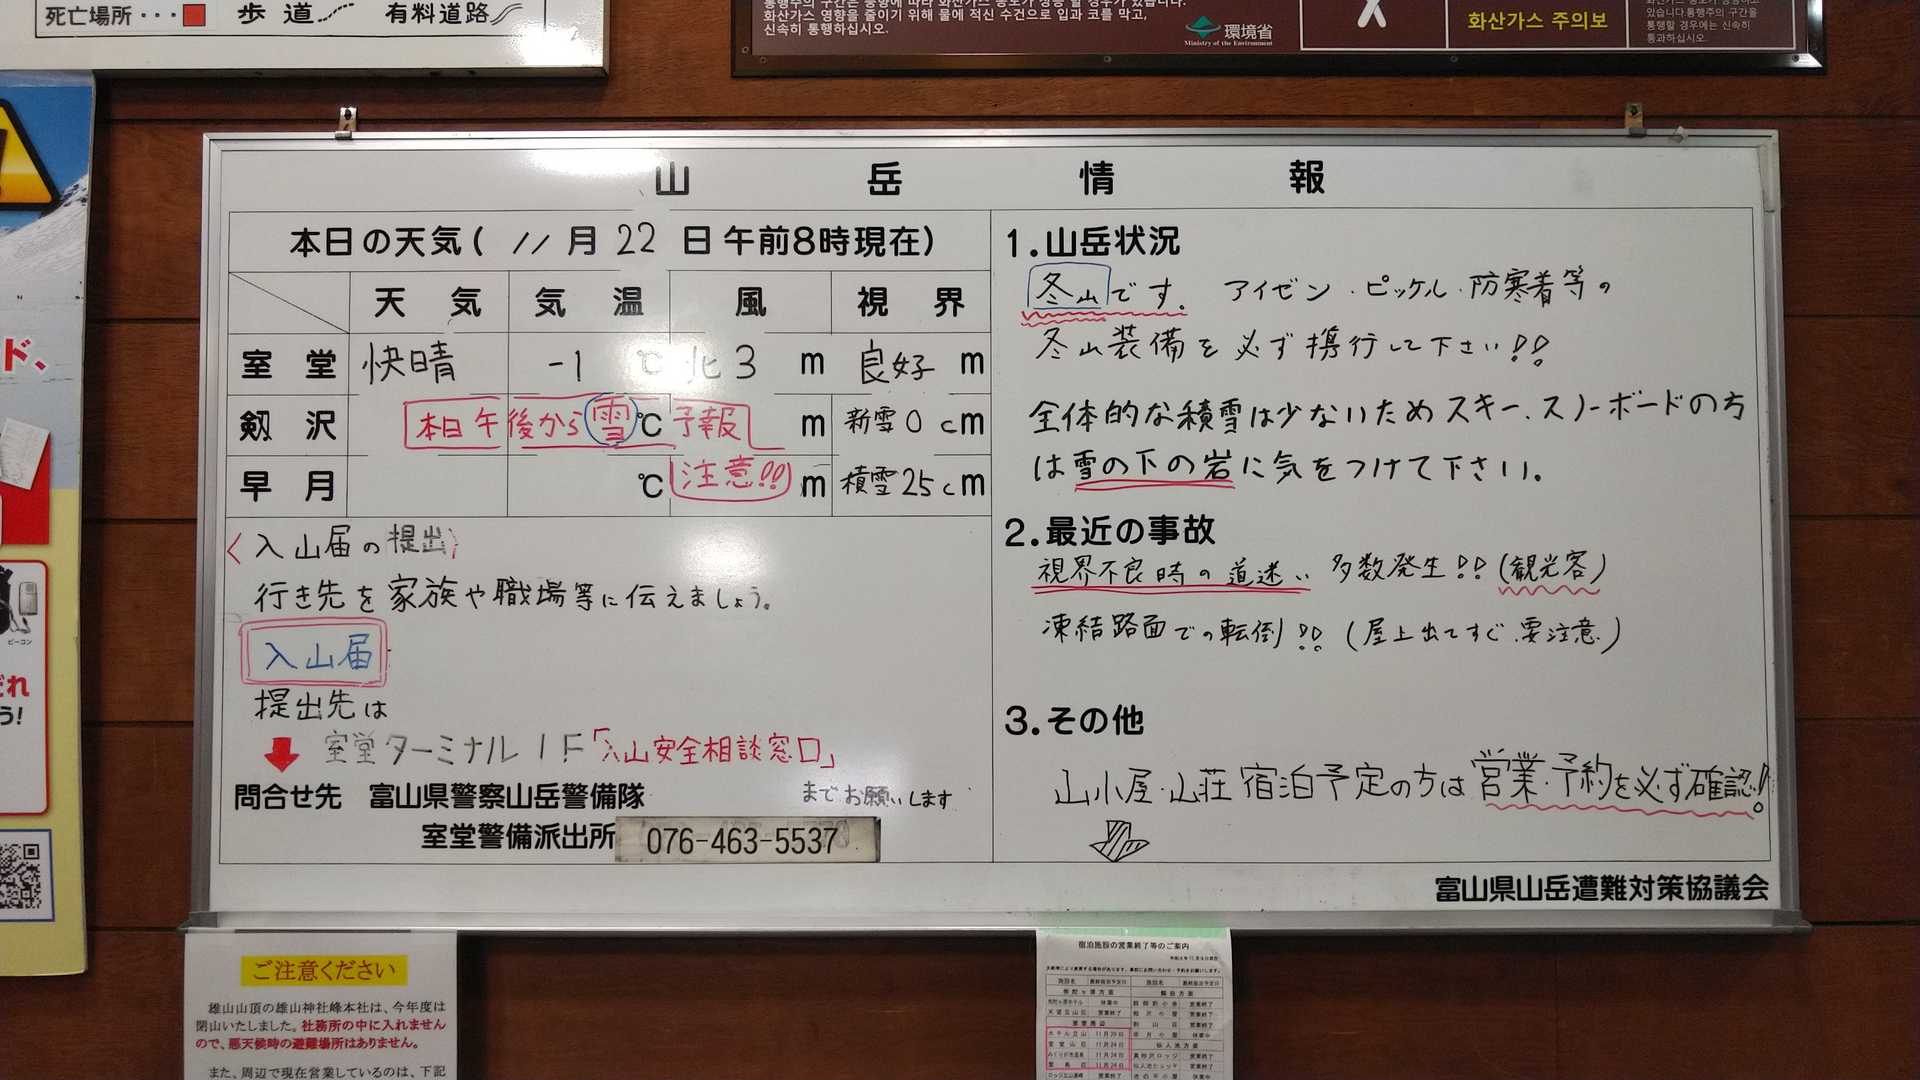 死亡場所・・・ 歩道 有料道路
화산가스 영향을 줄이기 위해 물에 적신 수건으로 입과 코를 막고,
신속히 통행하십시오.
環境省
Ministry of the Environment
화산가스 주의보
있습니다.통행주의 구간을
통행할 경우에는 신속히
통과하십시오.
山岳情報
本日の天気( 11月22日午前8時現在)
天気 気温 風 視界
室堂 快晴 -1℃ 北3m 良好m
剱沢 ℃ m 新雪0cm
本日午後から雪予報
早月 ℃ m 積雪25cm
注意!!
〈入山届の提出〉
行き先を家族や職場等に伝えましょう。
入山届
提出先は
室堂ターミナル1F「入山安全相談窓口」
までお願いします
問合せ先 富山県警察山岳警備隊
室堂警備派出所 076-463-5537
1.山岳状況
冬山です。アイゼン・ピッケル・防寒着等の
冬山装備を必ず携行して下さい!!
全体的な積雪は少ないためスキー、スノーボードの方
は雪の下の岩に気をつけて下さい。
2.最近の事故
視界不良時の道迷い 多数発生!!(観光客)
凍結路面での転倒!!(屋上出てすぐ要注意)
3.その他
山小屋・山荘宿泊予定の方は営業・予約を必ず確認!
富山県山岳遭難対策協議会
ド、
ビーコン
ご注意ください
雄山山頂の雄山神社峰本社は、今年度は
閉山いたしました。社務所の中に入れません
ので、悪天候時の避難場所はありません。
また、周辺で現在営業しているのは、下記
宿泊施設の営業終了等のご案内
施設名 最終宿泊予定日 施設名 最終宿泊予定日